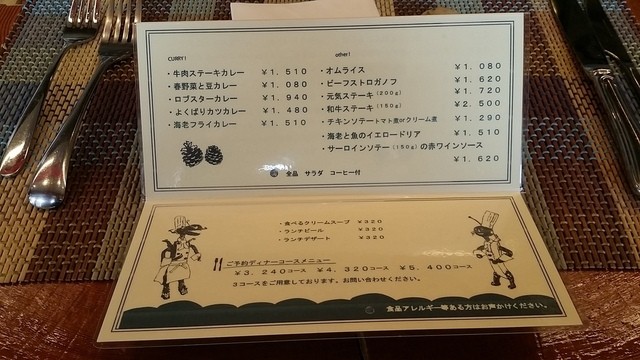 CURRY!
・牛肉ステーキカレー ￥1.510
・春野菜と豆カレー ￥1.080
・ロブスターカレー ￥1.940
・よくばりカツカレー ￥1.480
・海老フライカレー ￥1.510
other!
・オムライス ￥1.080
・ビーフストロガノフ ￥1.620
・元気ステーキ(200g) ￥1.720
・和牛ステーキ(150g) ￥2.500
・チキンソテートマト煮orクリーム煮 ￥1.290
・海老と魚のイエロードリア ￥1.510
・サーロインソテー(150g)の赤ワインソース
￥1.620
全品 サラダ コーヒー付
・食べるクリームスープ ￥320
・ランチビール ￥320
・ランチデザート ￥320
ご予約ディナーコースメニュー
￥3.240コース ￥4.320コース ￥5.400コース
3コースをご用意しております。お問い合わせください。
食品アレルギー等ある方はお声かけください。